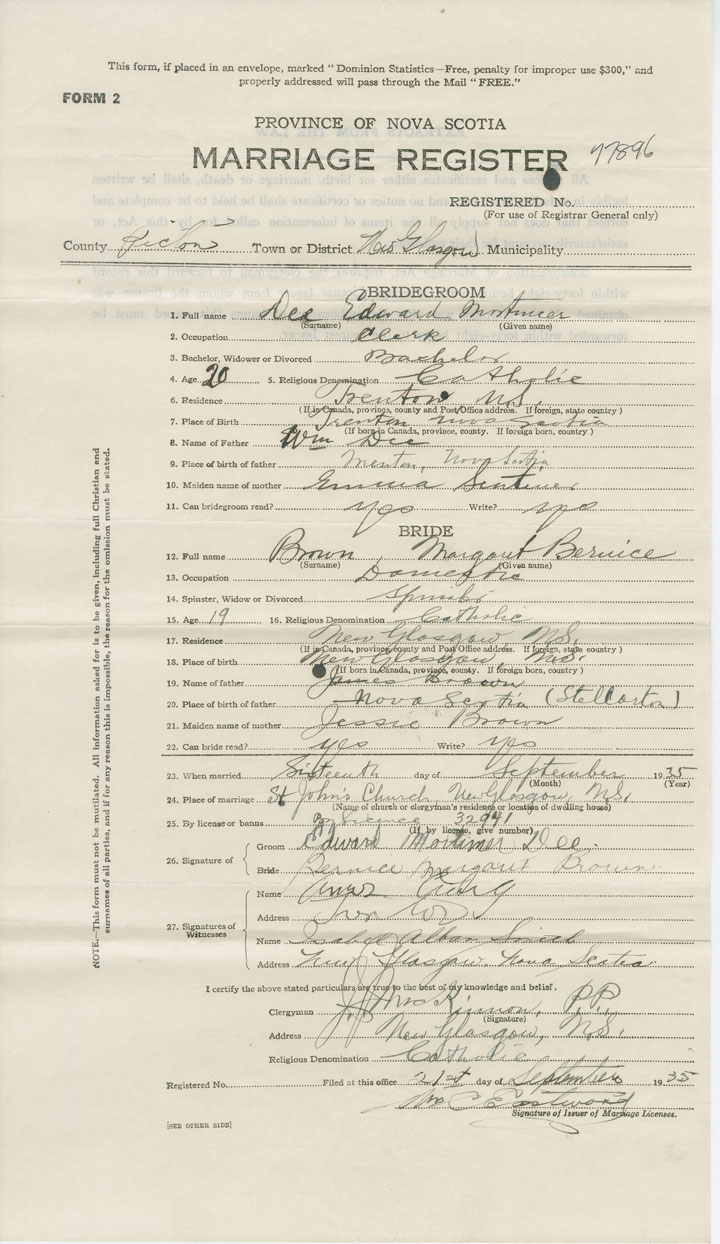 This form, if placed in an envelope, marked "Dominion Statistics—Free, penalty for improper use $300," and
properly addressed will pass through the Mail "FREE."
FORM 2
PROVINCE OF NOVA SCOTIA
MARRIAGE REGISTER 77896
REGISTERED No.
(For use of Registrar General only)
County Pictou Town or District New Glasgow Municipality
BRIDEGROOM
1. Full name Dee Edward Mortimer
(Surname) (Given name)
2. Occupation Clerk
3. Bachelor, Widower or Divorced Bachelor
4. Age 20 5. Religious Denomination Catholic
6. Residence Trenton N.S.
(If in Canada, province, county and Post Office address. If foreign, state country)
7. Place of Birth Trenton Nova Scotia
(If born in Canada, province, county. If foreign born, country)
8. Name of Father Wm Dee
9. Place of birth of father Nova Scotia
10. Maiden name of mother Emma
11. Can bridegroom read? yes Write? yes
BRIDE
12. Full name Brown, Margaret Bernice
(Surname) (Given name)
13. Occupation Domestic
14. Spinster, Widow or Divorced
15. Age 19 16. Religious Denomination Catholic
17. Residence New Glasgow, N.S.
(If in Canada, province, county and Post Office address. If foreign, state country)
18. Place of birth New Glasgow, N.S.
(If born in Canada, province, county. If foreign born, country)
19. Name of father James Brown
20. Place of birth of father Nova Scotia (Stellarton)
21. Maiden name of mother Jessie Brown
22. Can bride read? yes Write? yes
23. When married Sixteenth day of September 1935
(Month) (Year)
24. Place of marriage St John's Church, New Glasgow, N.S.
(Name of church or clergyman's residence or location of dwelling house)
25. By license or banns License 32941
(If, by license, give number)
26. Signature of
Groom Edward Mortimer Dee
Bride Bernice Margaret Brown
27. Signatures of Witnesses
Name Angus
Address Trenton
Name
Address New Glasgow, Nova Scotia
I certify the above stated particulars are true to the best of my knowledge and belief.
Clergyman J. J. McKinnon, P.P.
(Signature)
Address New Glasgow, N.S.
Religious Denomination Catholic
Registered No. Filed at this office 21st day of September 1935
Eastwood
Signature of Issuer of Marriage Licenses.
[SEE OTHER SIDE]
NOTE.—This form must not be mutilated. All information asked for is to be given, including full Christian and
surnames of all parties, and if for any reason this is impossible, the reason for the omission must be stated.